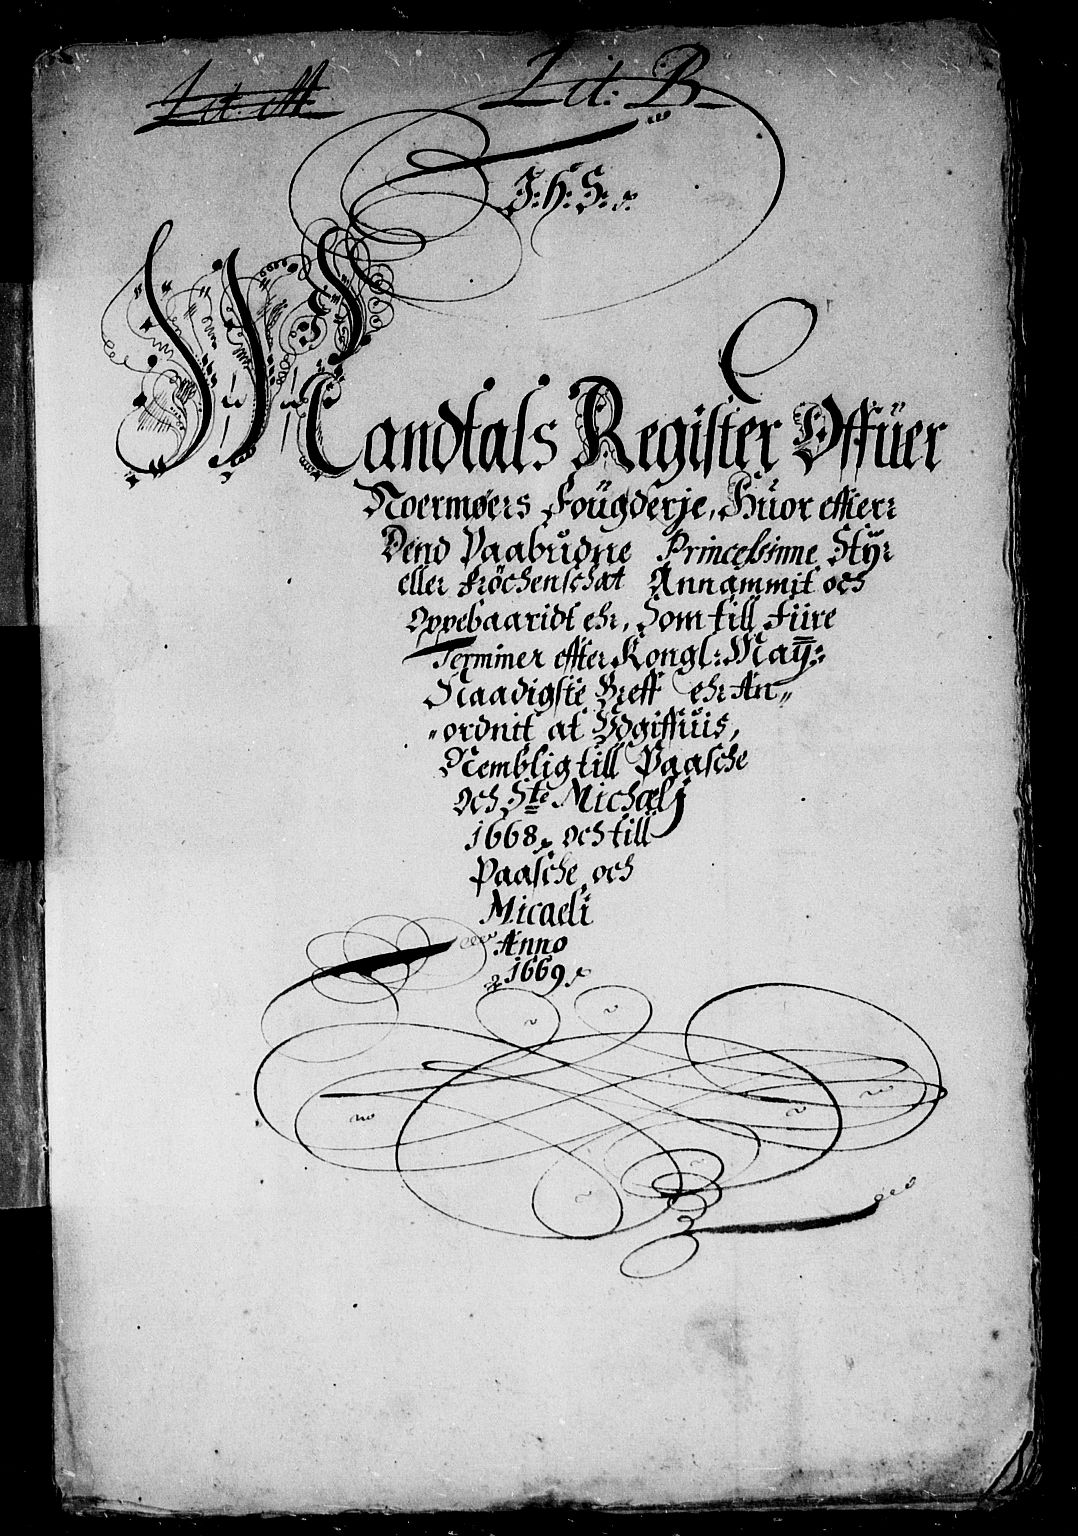 Lit: M.
Lit: B.
J: h: S:
Mandtals Register Offüer
Noermøers Fougderje, Huor effter
Dend Paabudne Princessinne Styr
eller Fröchenschat Annammit och
Oppebaaridt ehr, Som till Fiire
Terminer effter Kongl: May:
Naadigste Breff ehr An„
„ordnit at Vdgiffuis,
Nemblig till Paasche
Och Ste Michælj
1668, och till
Paasche och
Micaeli
Anno
1669.